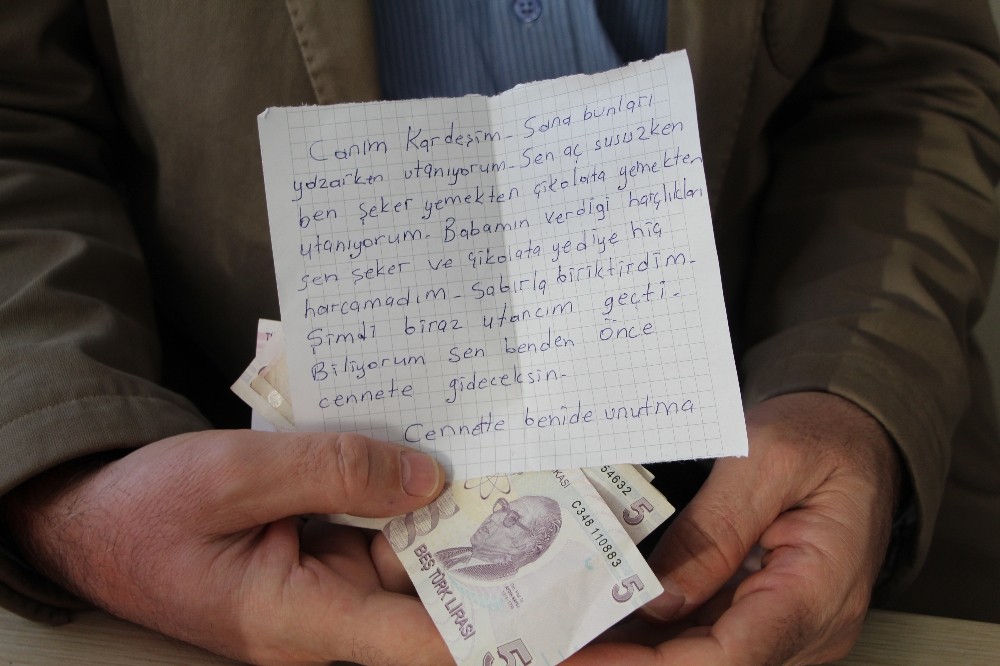 Canım Kardeşim- Sana bunları
yazarken utanıyorum- Sen aç susuzken
ben şeker yemekten çikolata yemekten
utanıyorum- Babamın verdiği harçlıkları
şen şeker ve çikolata yediye hiç
harcamadım- Sabırla biriktirdim-
Şimdi biraz utancım geçti-
Biliyorum sen benden önce
cennete gideceksin-
Cennette benide unutma
54632 5
KASI
C348 110883
5
BEŞ TÜRK LİRASI
5